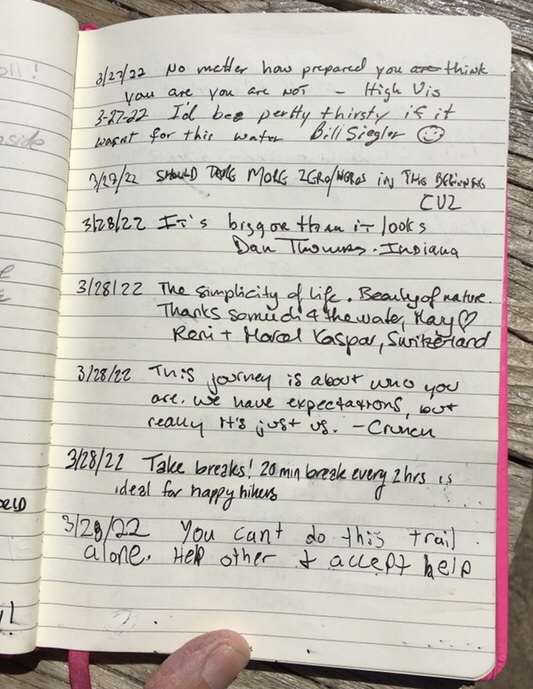 oll!
side
eeld
y!
3/27/22 No matter how prepared you are think
you are you are not - High Vis
3-27-22 I'd be pertty thirsty if it
wasnt for this water Bill Siegler ☺
3/27/22 SHOULD TAKE MORE ZERO/NEROS IN THE BEGINING
CUZ
3/28/22 It's bigger than it looks
Dan Thomas. Indiana
3/28/22 The simplicity of life. Beauty of nature.
Thanks so much 4 the water, Mary ♡
Reni + Marcel Kaspar, Switzerland
3/28/22 This journey is about who you
are. we have expectations, but
really it's just us. - Crunch
3/28/22 Take breaks! 20 min break every 2 hrs is
ideal for happy hikers
3/28/22 You cant do this trail
alone. Help other & accept help